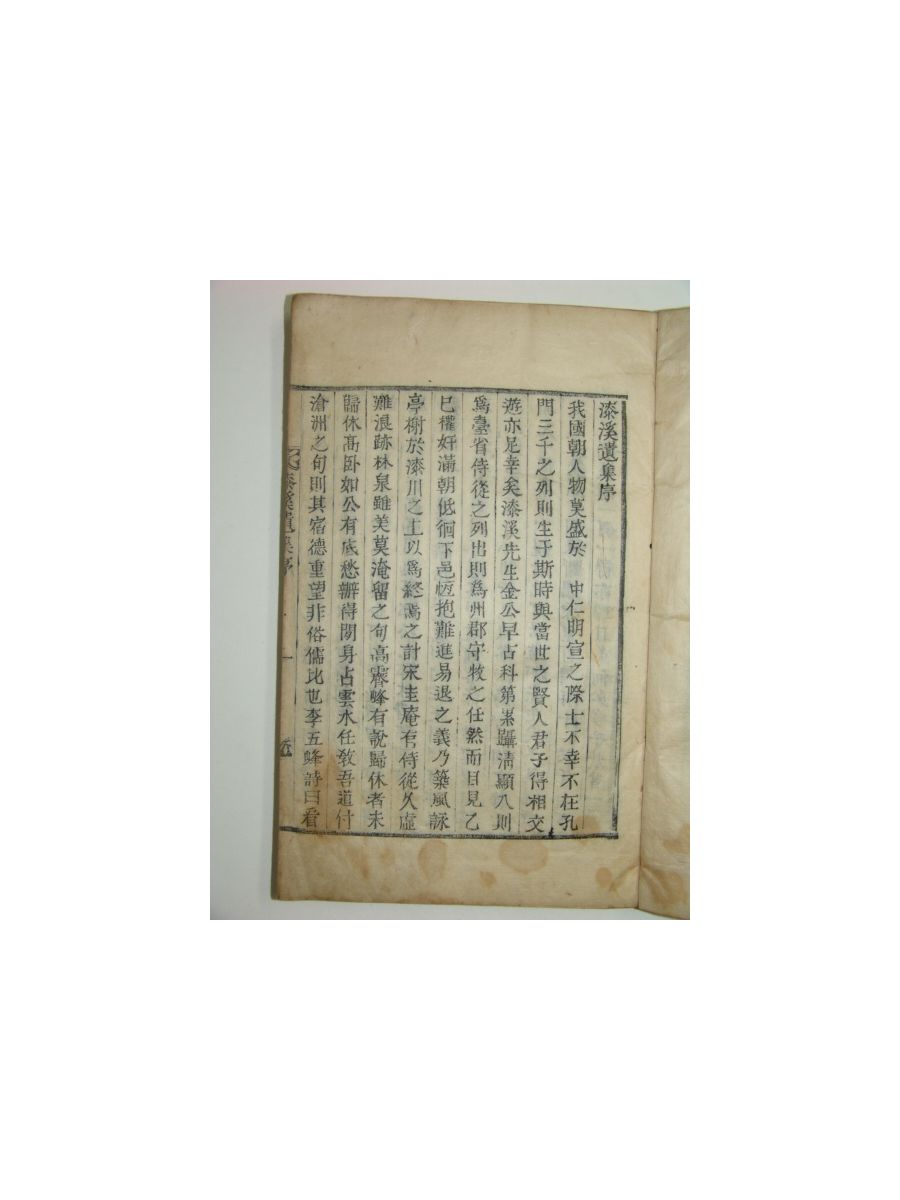 漆溪遺集序
我國朝人物莫盛於 中仁明宣之際士不幸不在孔
門三千之列則生于斯時與當世之賢人君子得相交
遊亦足幸矣漆溪先生金公早占科第累躡淸顯入則
爲臺省侍從之列出則爲州郡守牧之任然而目見乙
巳權奸滿朝低徊下邑恆抱難進易退之義乃築風詠
亭榭於漆川之上以爲終焉之計宋圭庵有侍從久虛
難浪跡林泉雖美莫淹留之句高霽峰有說歸休者未
歸休高卧如公有底愁辦得閒身占雲水任敎吾道付
滄洲之句則其宿德重望非俗儒比也李五峰詩曰看
漆溪遺集序 一